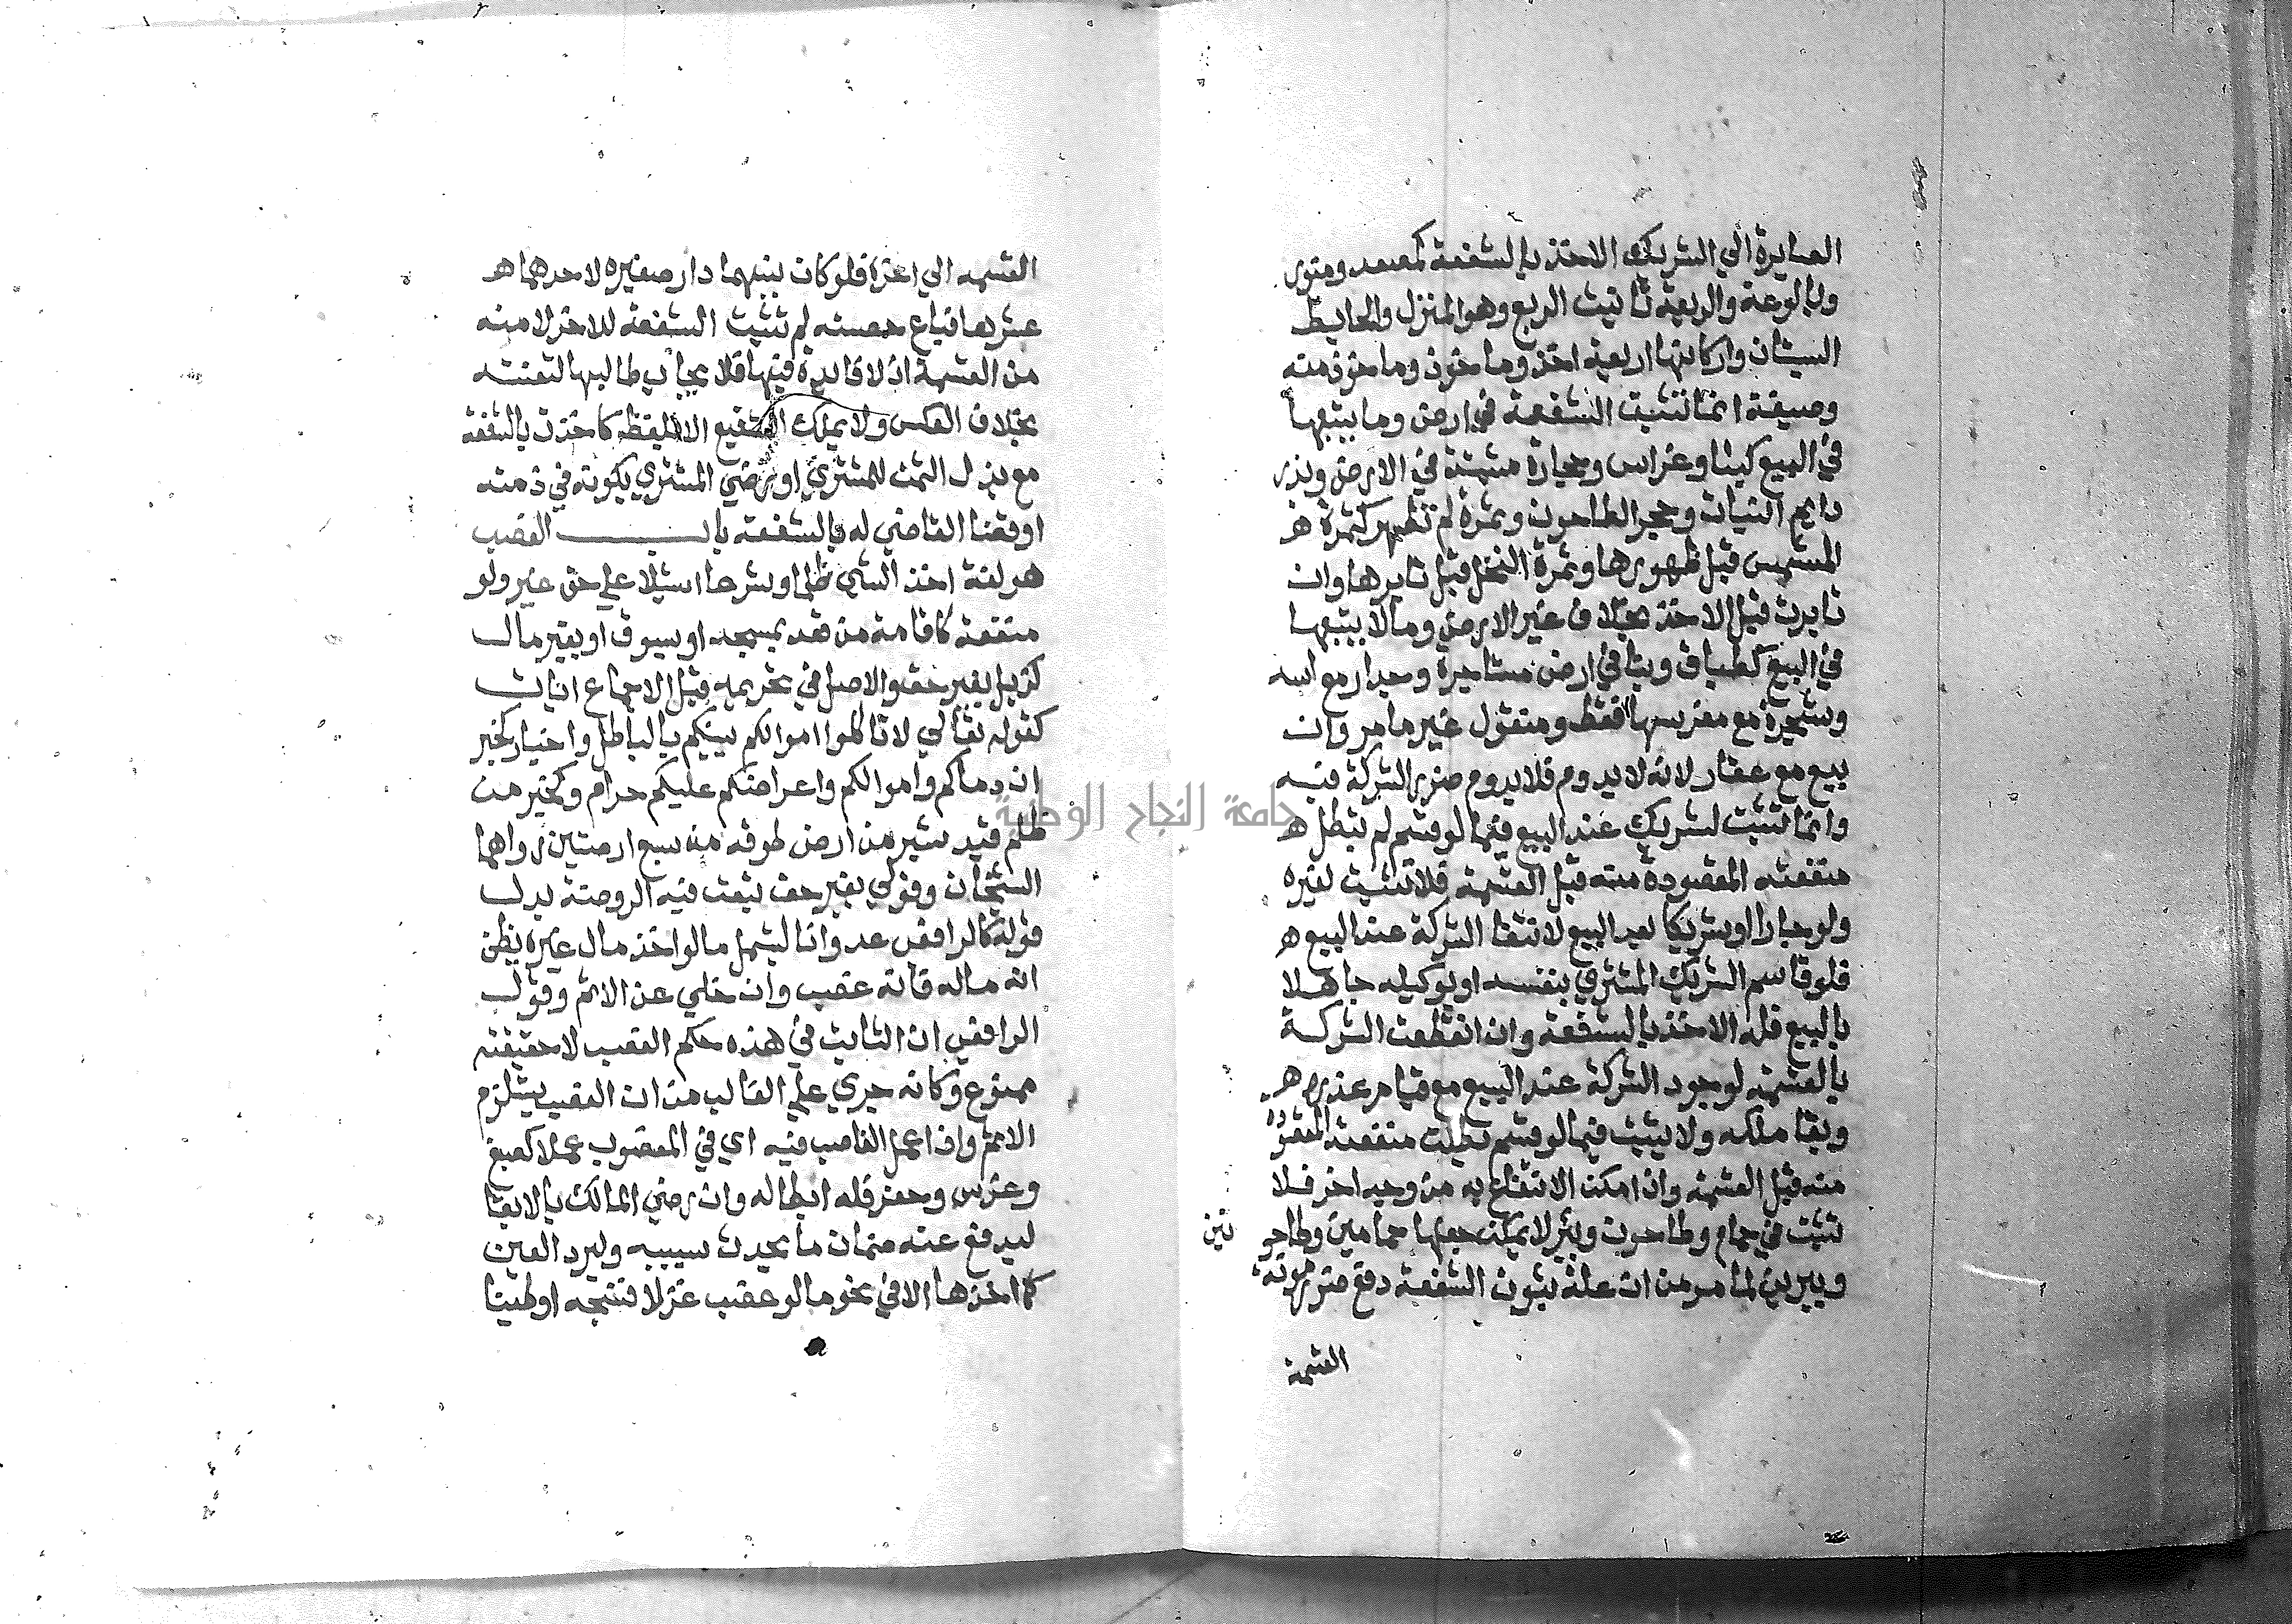 الصايرة الي الشريك الاخذ بالشفعة كمصعد ومنور
وبالوعة والربعة تانيث الربع وهو المنزل والحايط
البستان واركانها اربعة اخذ وماخوذ وماخوذ منه
وصيغة انما تثبت الشفعة في ارض وما يتبعها
في البيع كبنا وغراس وحجارة مثبتة في الارض وبذر
دايم النبات وحجر الطاحون وثمرة لم تظهر كثمرة هـ
المشمس قبل ظهورها وثمرة النخل قبل تابرها وان
تابرت قبل الاخذ بخلاف غير الارض وما لا يتبعها
في البيع كطباق وبنا في ارض مستاجرة وجدار مع اسه
وشجرة مع مغرسها فقط ومنقول غير ما مر وان
بيع مع عقار لانه لا يدوم فلا يدوم ضرر الشركة فيه
وانما تثبت لشريك عند البيع فيما لو قسم لم تبطل هـ
منفعته المقصودة منه قبل القسمة فلا تثبت لغيره
ولو جارا او شريكا بعد البيع لانتفا الشركة عند البيع هـ
فلو قاسم الشريك المشتري بنفسه او بوكيله جاهلا
بالبيع فله الاخذ بالشفعة وان انقطعت الشركة
بالقسمة لوجود الشركة عند البيع مع قيام عذره هـ
وبقا ملكه ولا يثبت فيما لو قسم بطلت منفعته المقصودة
منه قبل القسمة وان امكن الانتفاع به من وجه اخر فلا
تثبت في حمام وطاحون وبئر لا يمكن جعلها حمامين وطاحو
نتين
وبيرين لما مر من ان علة ثبوت الشفعة دفع ضرر مونة
القسمة
القسمه الي اخره فلو كان بينهما دار صغيره لاحدهما هـ
عشرها فباع حصته لم تثبت الشفعة للاخر لامنه
من القسمة اذ لا فايدة فيها فلا يجاب طالبها لتعنته
بخلاف العكس ولا يملك الشفيع الا بلفظ كاخذت بالشفعة
مع بذل الثمن للمشتري او رضي المشتري بكونه في ذمته
او قضا القاضي له بالشفعة باب الغصب
هو لغة اخذ الشي ظلما وشرعا استيلا علي حق غير ولو
منفعة كاقامة من قعد بمسجد او سوق او بغير مال
كزبل بغير حق والاصل في تحريمه قبل الاجماع ايات
كقوله تعالي لا تاكلوا اموالكم بينكم بالباطل واخبار كخبر
ان دماكم واموالكم واعراضكم عليكم حرام وكخبر من
ظلم قيد شبر من ارض طوقه من سبع ارضين رواهما
الشيخان وقولي بغير حق تبعت فيه الروضة بدل
قوله كالرافعي عدوانا ليشمل ما لو اخذ مال غيره يظن
انه ماله فانه غصب وان خلي عن الاثم وقول
الرافعي ان الثابت في هذه حكم الغصب لا حقيقته
ممنوع وكانه جري علي الغالب من ان الغصب يستلزم
الاثم واذا عمل الغاصب فيه اي في المغصوب عملا كصبغ
وغرس وحفر فله ابطاله وان رضي المالك بالابقا
ليدفع عنه ضمان ما يحدث بسببه وليرد العين
كما اخذها الا في نحو ما لو غصب غزلا فنسجه او طينا
جامعة النجاح الوطنية